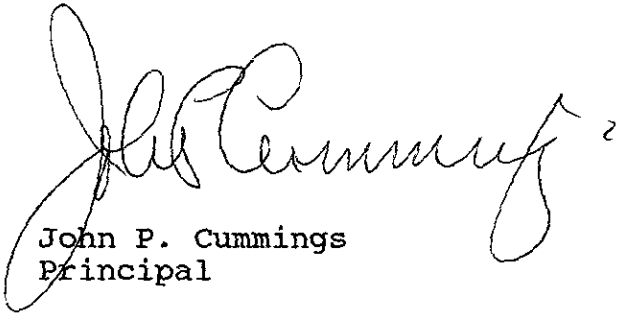 John P. Cummings
John P. Cummings
Principal